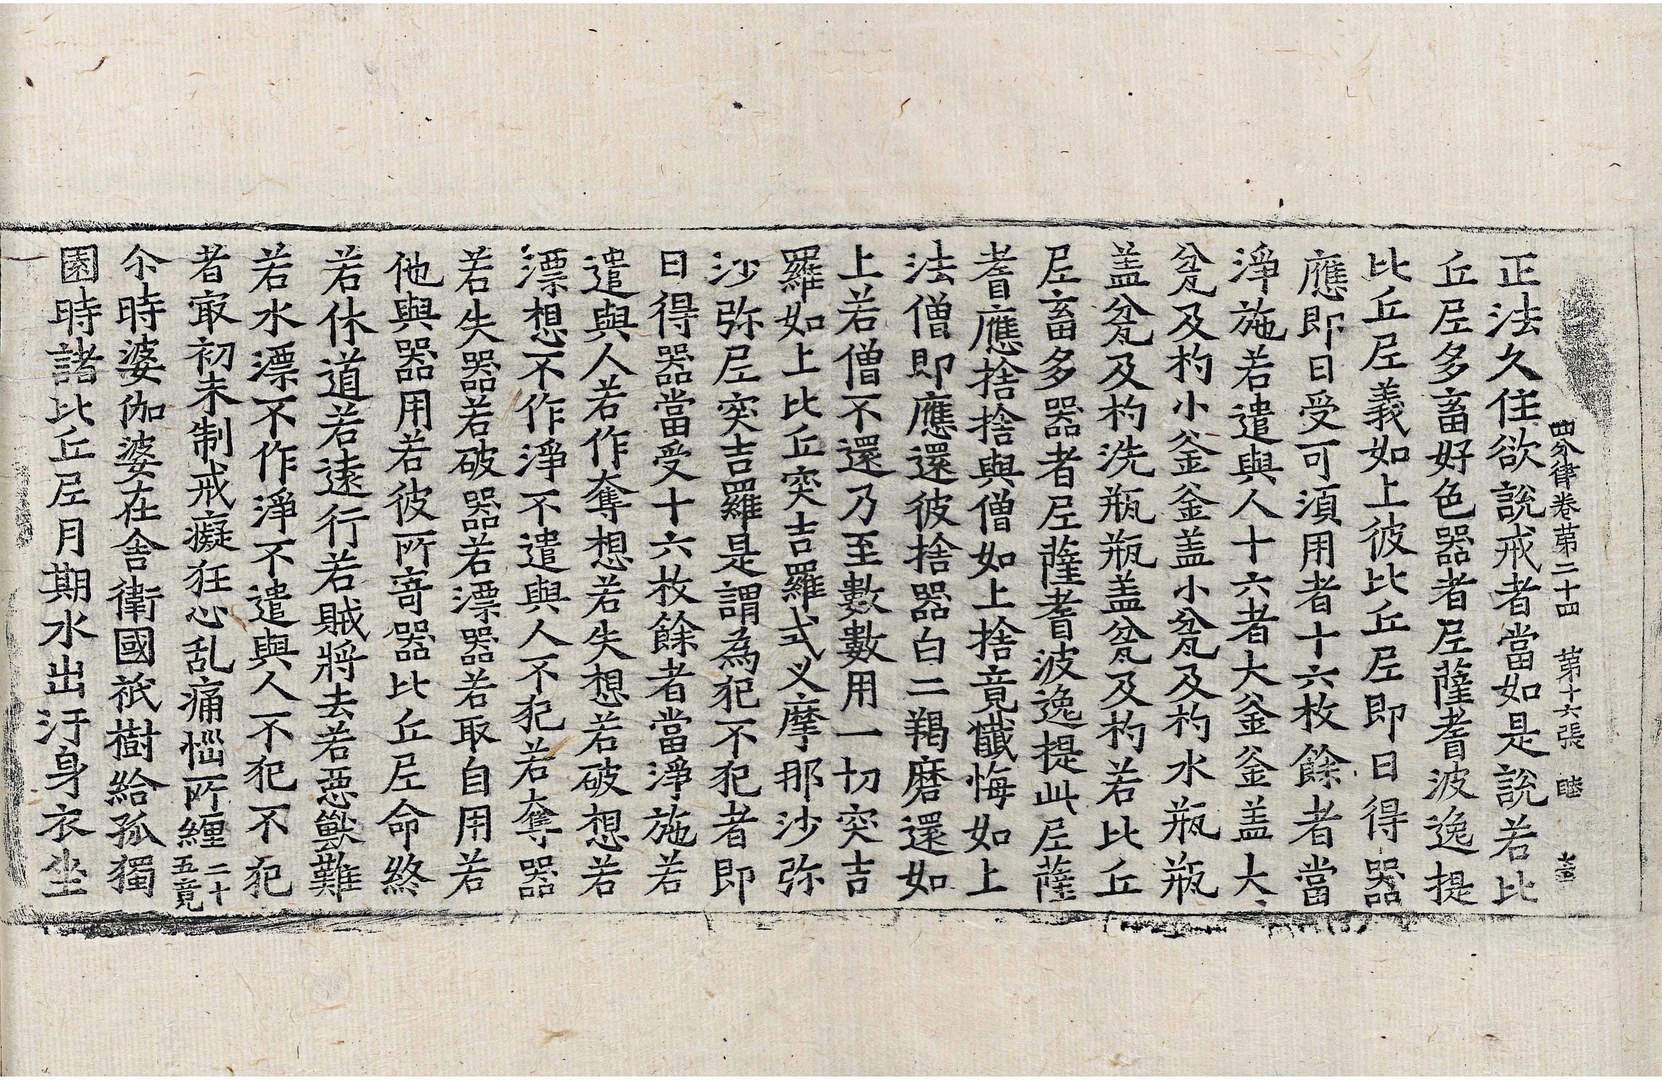 四分律卷第二十四　第十六張　睦
正法久住欲說戒者當如是說若比
丘尼多畜好色器者尼薩耆波逸提
比丘尼義如上彼比丘尼即日得器
應即日受可湏用者十六枚餘者當
淨施若遣與人十六者大釜釜盖大
瓫及杓小釜釜盖小瓫及杓水瓶瓶
盖瓫及杓洗瓶瓶盖瓫及杓若比丘
尼畜多器者尼薩耆波逸提此尼薩
耆應捨捨與僧如上捨竟懺悔如上
法僧即應還彼捨器白二羯磨還如
上若僧不還乃至數數用一切突吉
羅如上比丘突吉羅式义摩那沙弥
沙弥尼突吉羅是謂為犯不犯者即
日得器當受十六枚餘者當淨施若
遣與人若作奪想若失想若破想若
漂想不作淨不遣與人不犯若奪器
若失器若破器若漂器若取自用若
他與器用若彼所寄器比丘尼命終
若休道若遠行若賊將去若惡獸難
若水漂不作淨不遣與人不犯不犯
者㝡初未制戒癡狂心乱痛惱所纏二十五竟
尒時婆伽婆在舍衛國祇樹給孤獨
園時諸比丘尼月期水出汙身衣坐